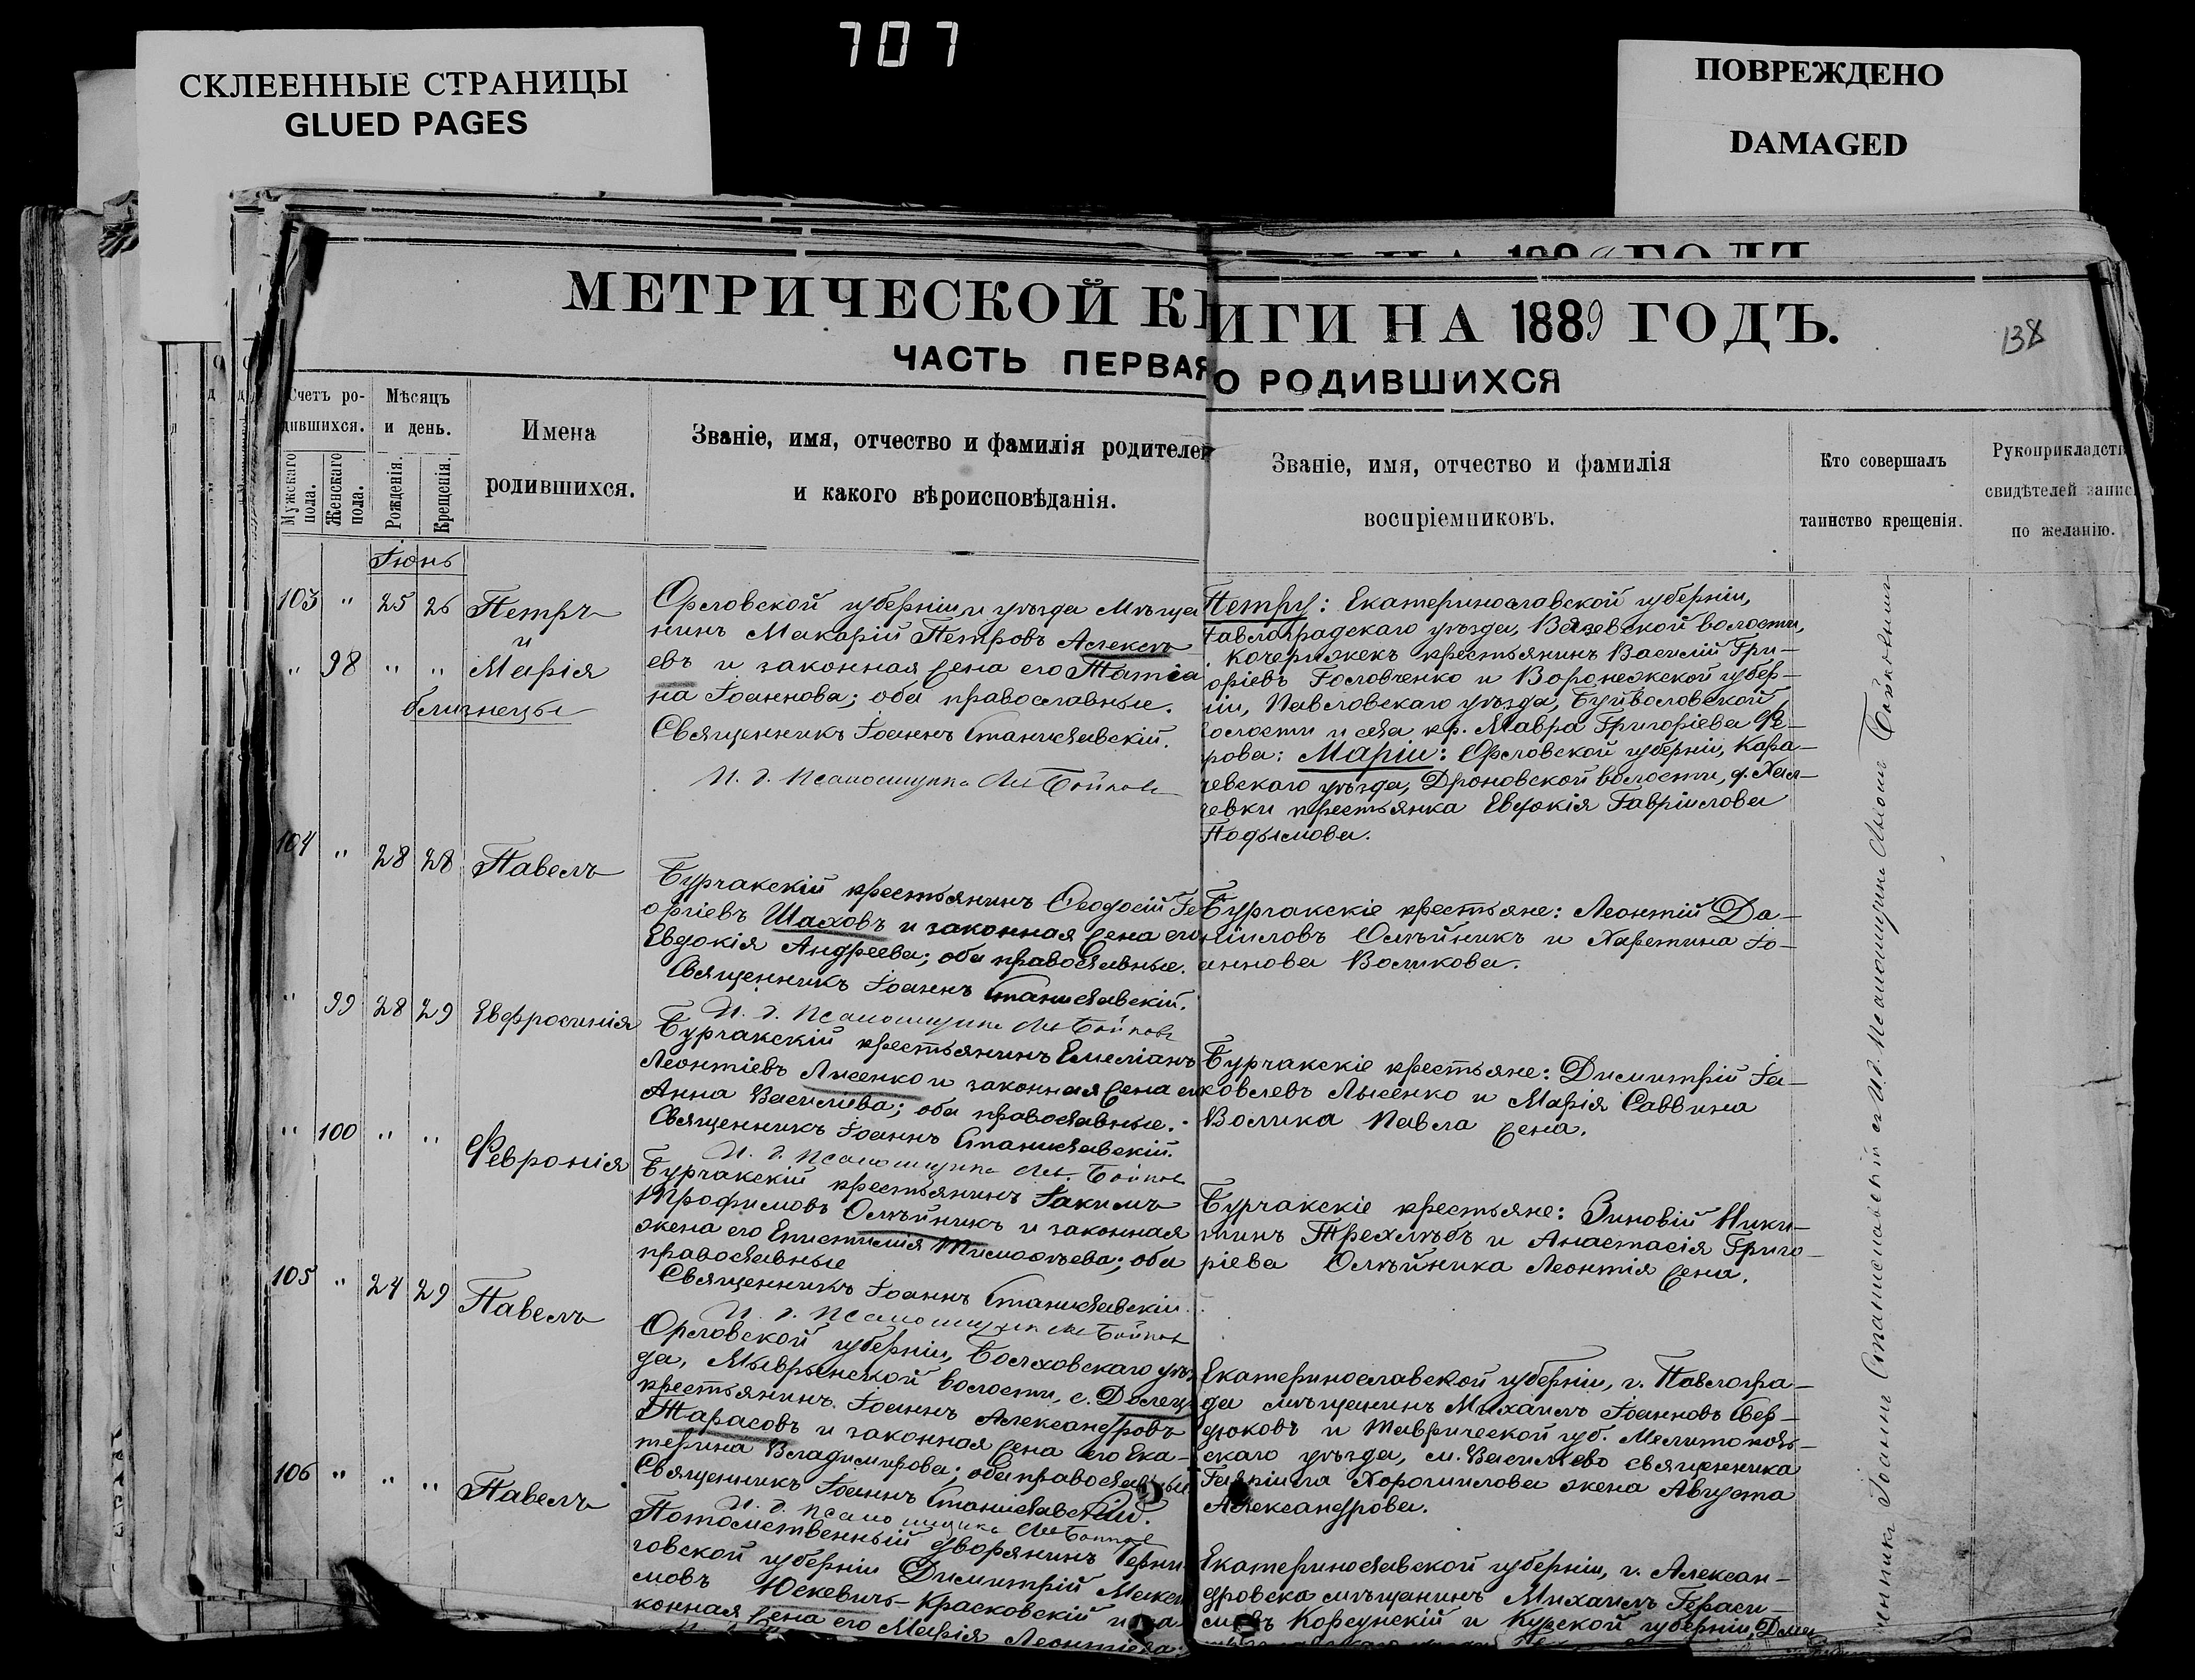 707
СКЛЕЕННЫЕ СТРАНИЦЫ
GLUED PAGES
ПОВРЕЖДЕНО
DAMAGED
МЕТРИЧЕСКОЙ КНИГИ НА 1889 ГОДЪ.
138
ЧАСТЬ ПЕРВАЯ О РОДИВШИХСЯ
Счетъ родившихся.
Мужскаго пола.
Женскаго пола.
Мѣсяцъ и день.
Рожденія.
Крещенія.
Имена родившихся.
Званіе, имя, отчество и фамилія родителей
и какого вѣроисповѣданія.
Званіе, имя, отчество и фамилія
воспріемниковъ.
Кто совершалъ
таинство крещенія.
Рукоприкладств
свидѣтелей запис
по желанію.
Іюнь
103 " 25 26 Петръ
и
" 98 " " Марія
близнецы
Орловской губерніи и уѣзда мѣща
нинъ Макарій Петровъ Алексѣ
евъ и законная жена его Татіа
на Іоаннова; оба православные.
Священникъ Іоаннъ Станиславскій.
И. д. Псаломщика Бойковъ
Петру: Екатеринославской губерніи,
Павлоградскаго уѣзда, волости,
Кочережекъ крестьянинъ Василій Гри-
оріевъ Головченко и Воронежской губер-
іи, Павловскаго уѣзда, Буйволовской
олости и села кр. Мавра Григоріева Фе-
рова; Маріи: Орловской губерніи, Кара-
чевскаго уѣзда, Дроновской волости, д.
крестьянка Евдокія Гавріилова
Подымова.
104 " 28 28 Павелъ
Бурчакскій крестьянинъ Ѳеодосій Ге
оргіевъ Шаховъ и законная жена его
Евдокія Андреева; оба православные.
Священникъ Іоаннъ Станиславскій.
И. д. Псаломщика Бойковъ
Бурчакскіе крестьяне: Леонтій Да-
ніиловъ Олѣйникъ и Харитина Іо-
аннова Воликова.
" 99 28 29 Евфросинія
Бурчакскій крестьянинъ Емеліанъ
Леонтіевъ Лысенко и законная жена его
Анна Василіева; оба православные.
Священникъ Іоаннъ Станиславскій.
И. д. Псаломщика Бойковъ
Бурчакскіе крестьяне: Димитрій Іа-
ковлевъ Лысенко и Марія Саввина
Волика Павла жена.
" 100 " " Февронія
Бурчакскій крестьянинъ Іакимъ
Трофимовъ Олѣйникъ и законная
жена его Епистимія Тимоѳѣева; оба
православные
Священникъ Іоаннъ Станиславскій.
И. д. Псаломщика Бойковъ
Бурчакскіе крестьяне: Зиновій Ники-
тинъ Трехлѣбъ и Анастасія Григо-
ріева Олѣйника Леонтія жена.
105 " 24 29 Павелъ
Орловской губерніи, Болховскаго уѣз
да, волости, с. Долец
крестьянинъ Іоаннъ Александровъ
Тарасовъ и законная жена его Ека-
терина Владимирова; оба православные
Священникъ Іоаннъ Станиславскій.
И. д. Псаломщика Бойковъ
Екатеринославской губерніи, г. Павлогра-
да мѣщанинъ Михаилъ Іоанновъ Сер-
дюковъ и Таврической губ. Мелитополь-
скаго уѣзда, м. Василіево священника
Гавріила Хорошилова жена Августа
Александрова.
106 " " " Павелъ
Потомственный дворянинъ Черни
говской губерніи Димитрій Макси
мовъ Юскевичъ-Красковскій и за
конная жена его Марія Леонтіева;
Екатеринославской губерніи, г. Алексан-
дровска мѣщанинъ Михаилъ Гераси-
мовъ Корсунскій и Курской губерніи, Дми
Священникъ Іоаннъ Станиславскій съ И. д. Псаломщика Бойковымъ